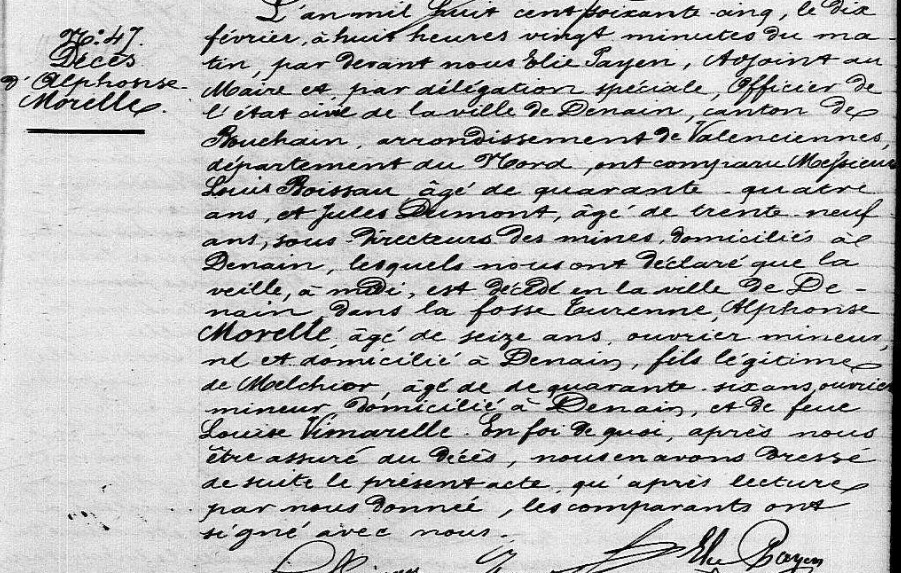 N.º 47.
Décès
d'Alphonse
Morelle.
L'an mil huit cent soixante-cinq, le dix
février, à huit heures vingt minutes du ma-
tin, par devant nous Elie Payen, Adjoint au
Maire et, par délégation spéciale, Officier de
l'état civil de la ville de Denain, canton de
Bouchain, arrondissement de Valenciennes,
département du Nord, ont comparu Messieurs
Louis Boissau âgé de quarante-quatre
ans, et Jules Dumont, âgé de trente-neuf
ans, sous-directeurs des mines, domiciliés à
Denain, lesquels nous ont déclaré que la
veille, à midi, est décédé en la ville de De-
nain dans la fosse Turenne, Alphonse
Morelle, âgé de seize ans, ouvrier mineur,
né et domicilié à Denain, fils légitime
de Melchior, âgé de de quarante-six ans, ouvrier
mineur, domicilié à Denain, et de feue
Louise Vimarelle. En foi de quoi, après nous
être assuré du décès, nous en avons dressé
de suite le présent acte, qu'après lecture
par nous donnée, les comparants ont
signé avec nous.
Elie Payen